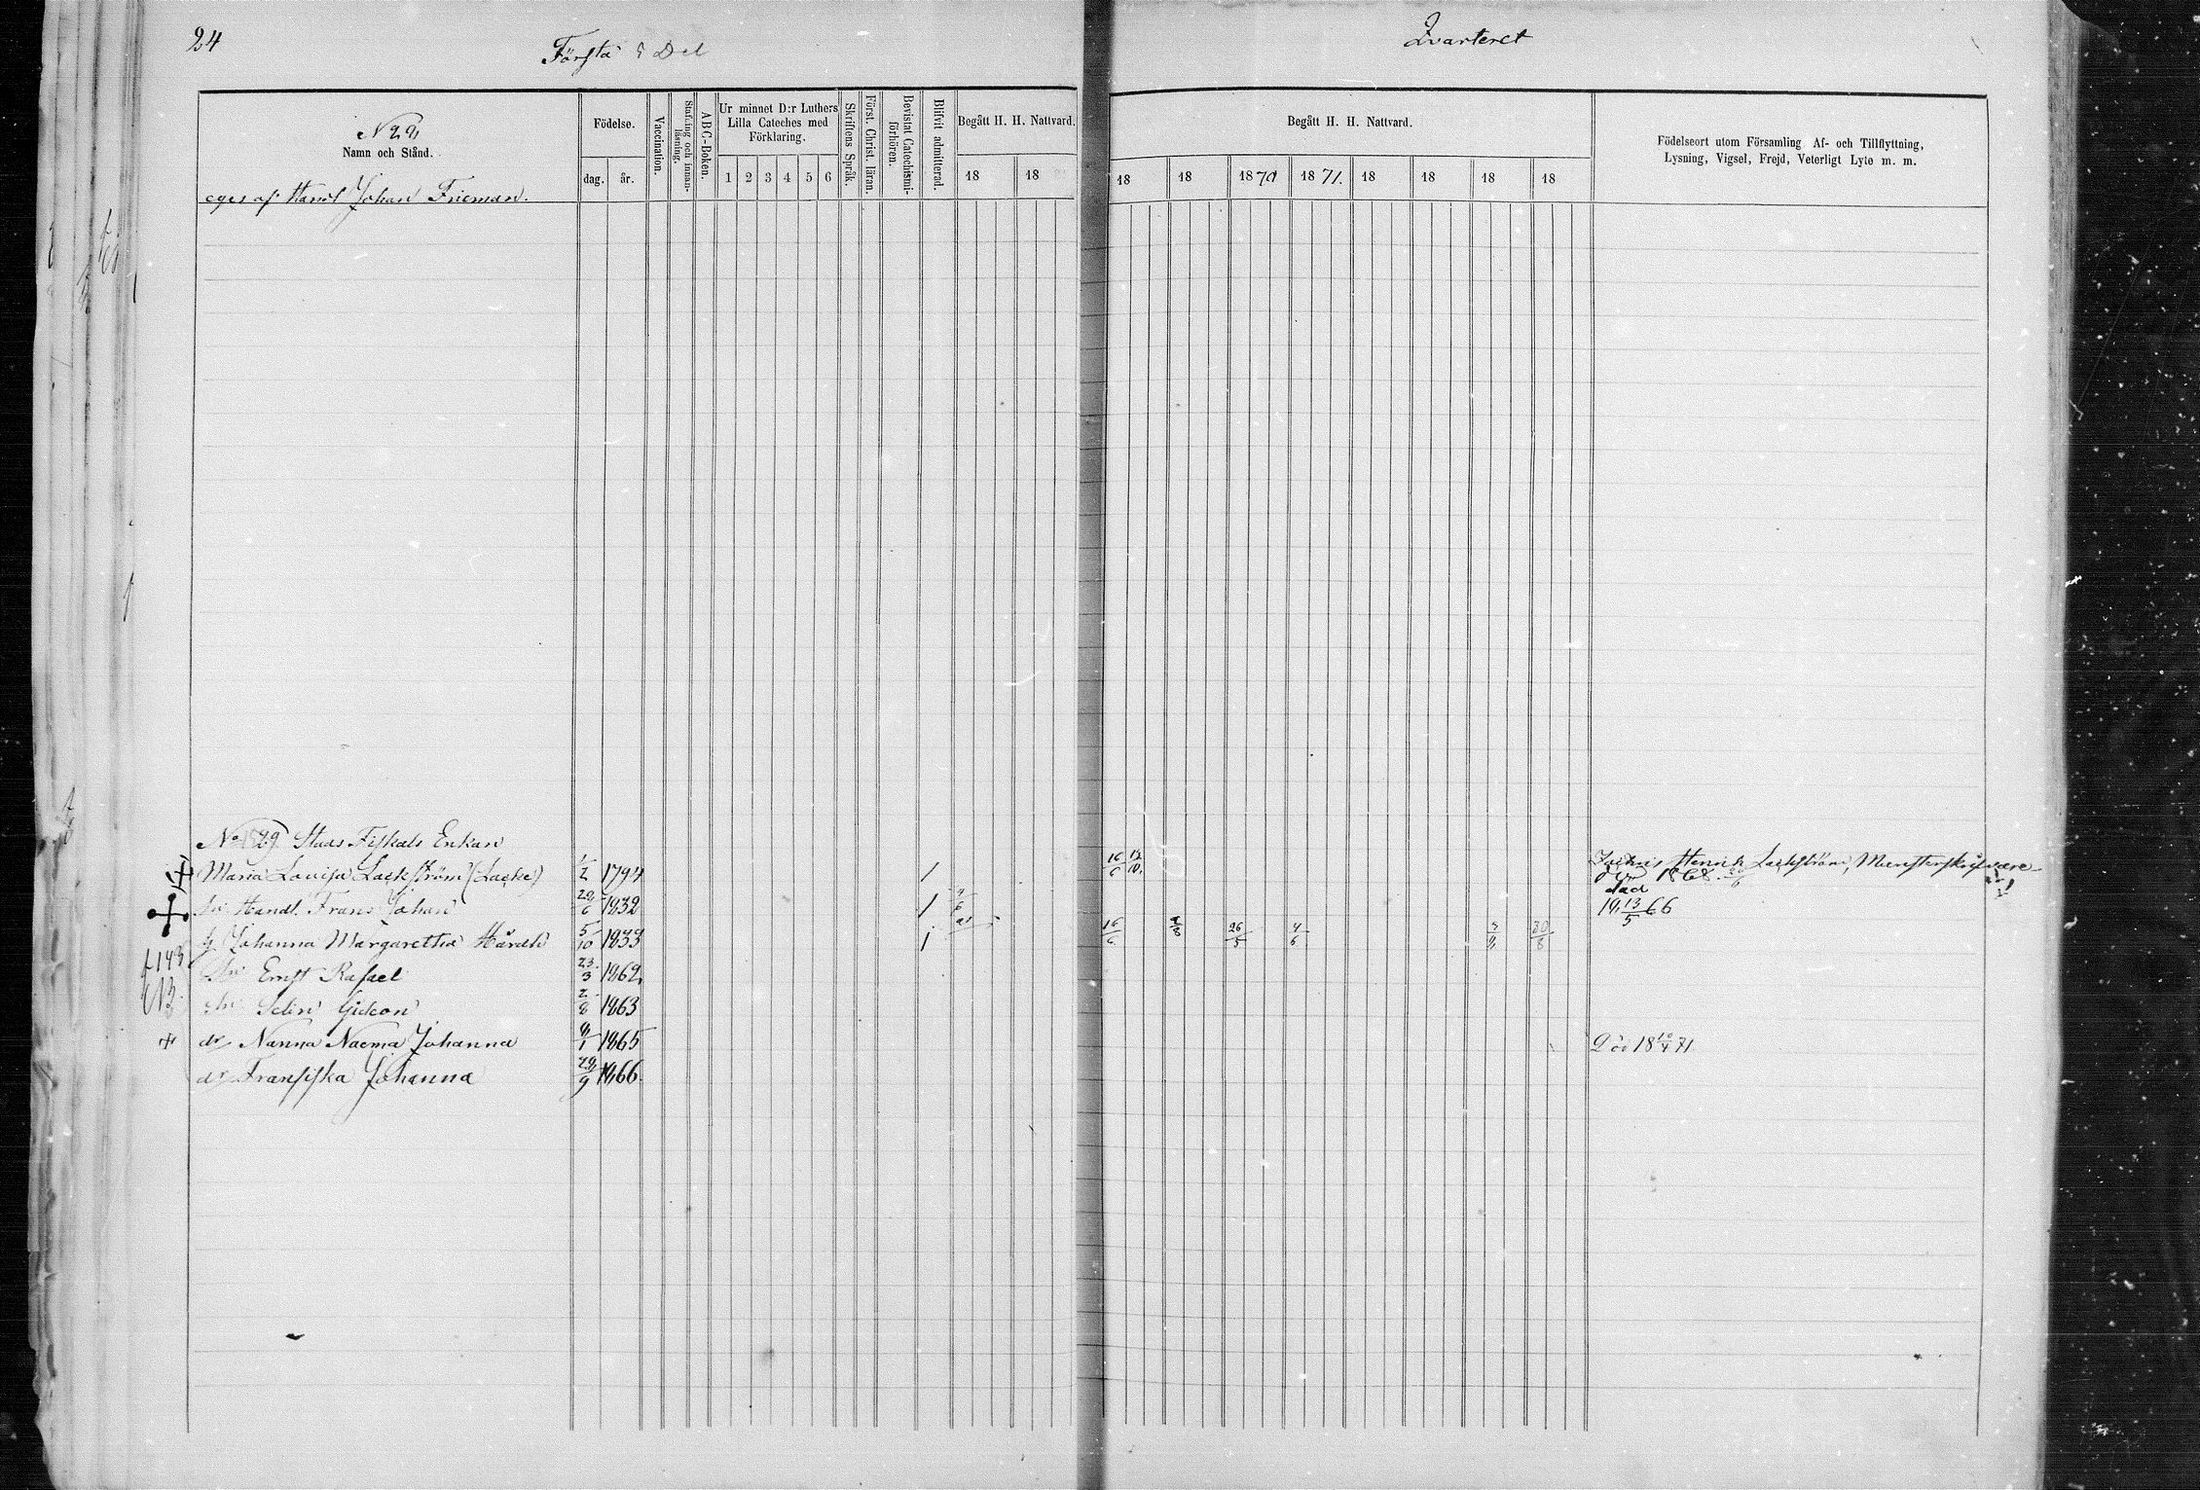 24
Första Del
Qvarteret
Namn och Stånd.
Födelse.
dag. år.
Vaccination.
Stafning och innanläsning.
ABC-Boken.
Ur minnet D:r Luthers Lilla Cateches med Förklaring.
1 2 3 4 5 6
Skriftens Språk.
Först. Christ. läran.
Bevistat Catechismiförhören.
Blifvit admitterad.
Begått H. H. Nattvard.
18 18
Begått H. H. Nattvard.
18 18 1870 1871. 18 18 18 18
Födelseort utom Församling Af- och Tillflyttning,
Lysning, Vigsel, Frejd, Veterligt Lyte m. m.
eges af Handl Johan Frieman.
No 29 Stads Fiskals Enkan
Maria Lovisa Lackström (Lacke) 1/2 1794 1 16/6
Henrik Lackström
död 1868
Handl. Frans Johan 1832 1
död
18 13/5 66
h Johanna Margaretha Hårdh 5/10 1833 1 16/6 26/5 4/6 30/8
Sn Ernst Rafael 23/3 1862
Sn Selin Gideon 2/8 1863
dr Nanna Naema Johanna 1865
Död 18 10/4 71
dr Fransiska Johanna 1866